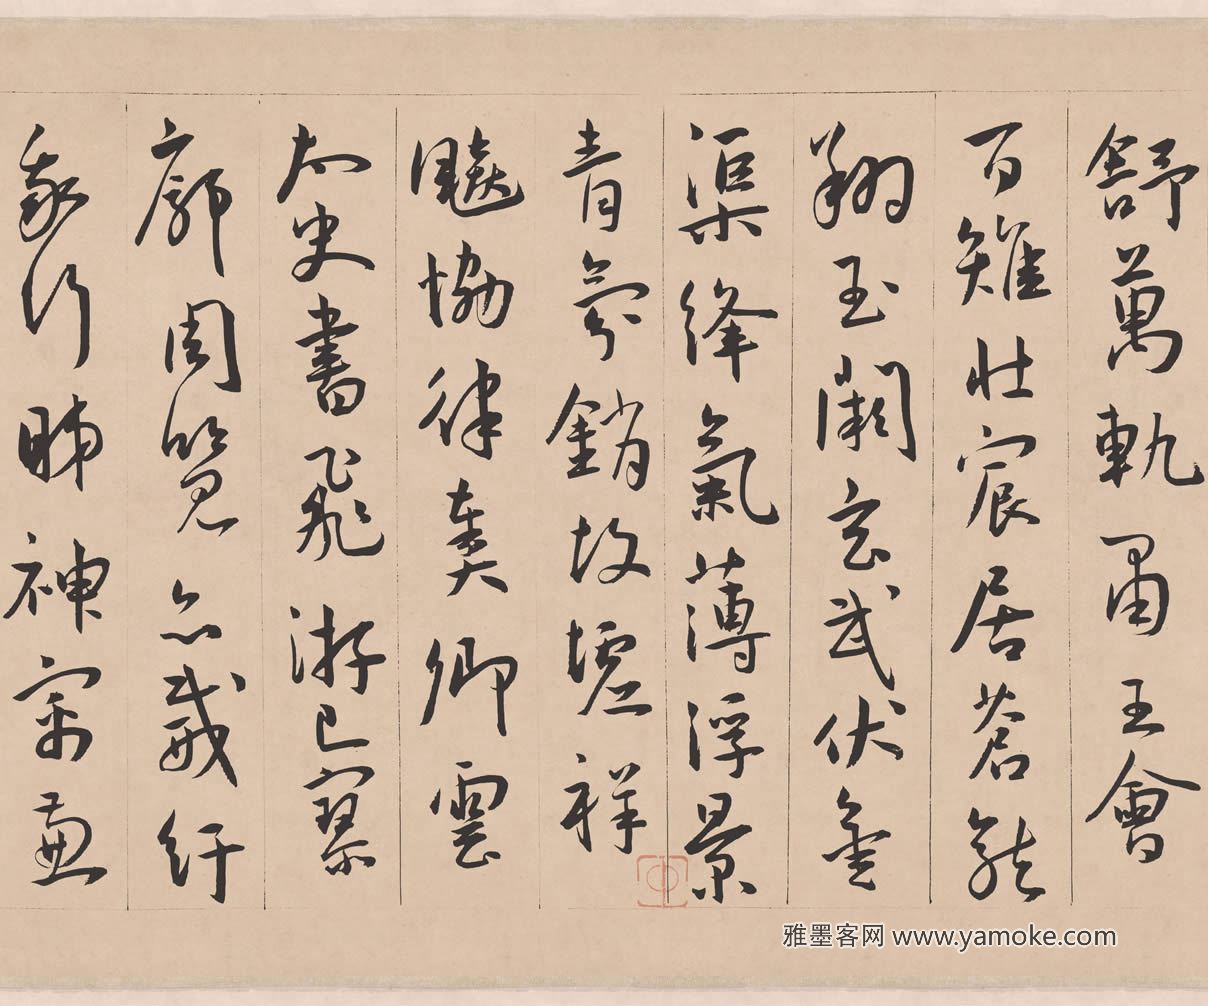 舒萬軌肅王會
百雉壯宸居蒼龍
翔玉闕玄武伏金
渠絳氣薄浮景
青雰銷故墟祥
飈協律奏卿雲
太史書飛游已寥
廓周覽亦威紆
我行睇神兼
雅墨客网 www.yamoke.com